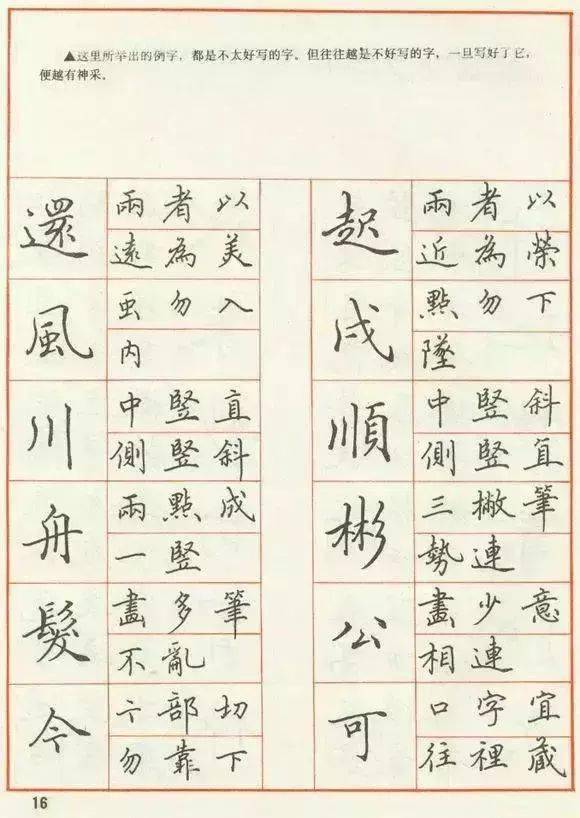 ▲这里所举出的例字，都是不太好写的字。但往往越是不好写的字，一旦写好了它，
便越有神采。
還
兩者以
遠為美
風
虫勿入
内
川
中竪直
側竪斜
舟
兩點成
一竪
髮
畫多筆
不亂
今
部切
勿靠下
起
兩者以
近為榮
戍
點勿下
墜
順
中竪斜
側竪直
彬
三撇筆
勢連
公
畫少意
相連
可
口字宜
往裡蔵
16